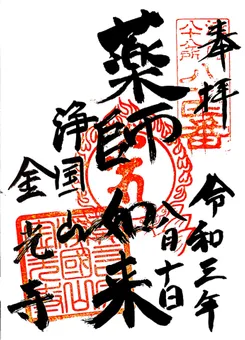 奉拝
令和三年
八月十日
薬師如来
浄国山
金光寺